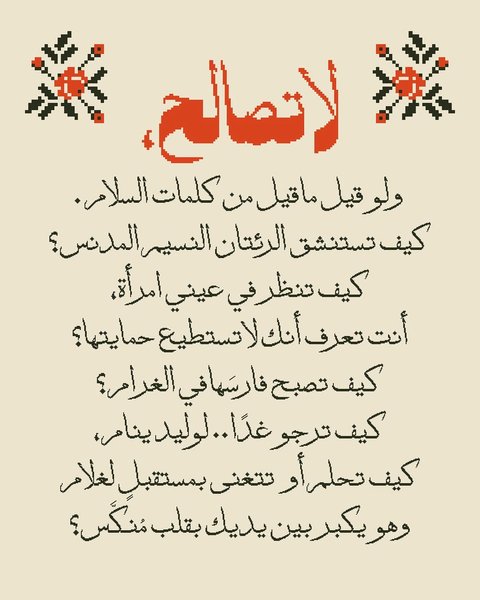 لا تصالح،
ولو قيل ما قيل من كلمات السلام.
كيف تستنشق الرئتان النسيم المدنس؟
كيف تنظر في عيني امرأة،
أنت تعرف أنك لا تستطيع حمايتها؟
كيف تصبح فارسَها في الغرام؟
كيف ترجو غدًا.. لوليد ينام،
كيف تحلم أو تتغنى بمستقبلٍ لغلام
وهو يكبر بين يديك بقلب مُنكَّس؟